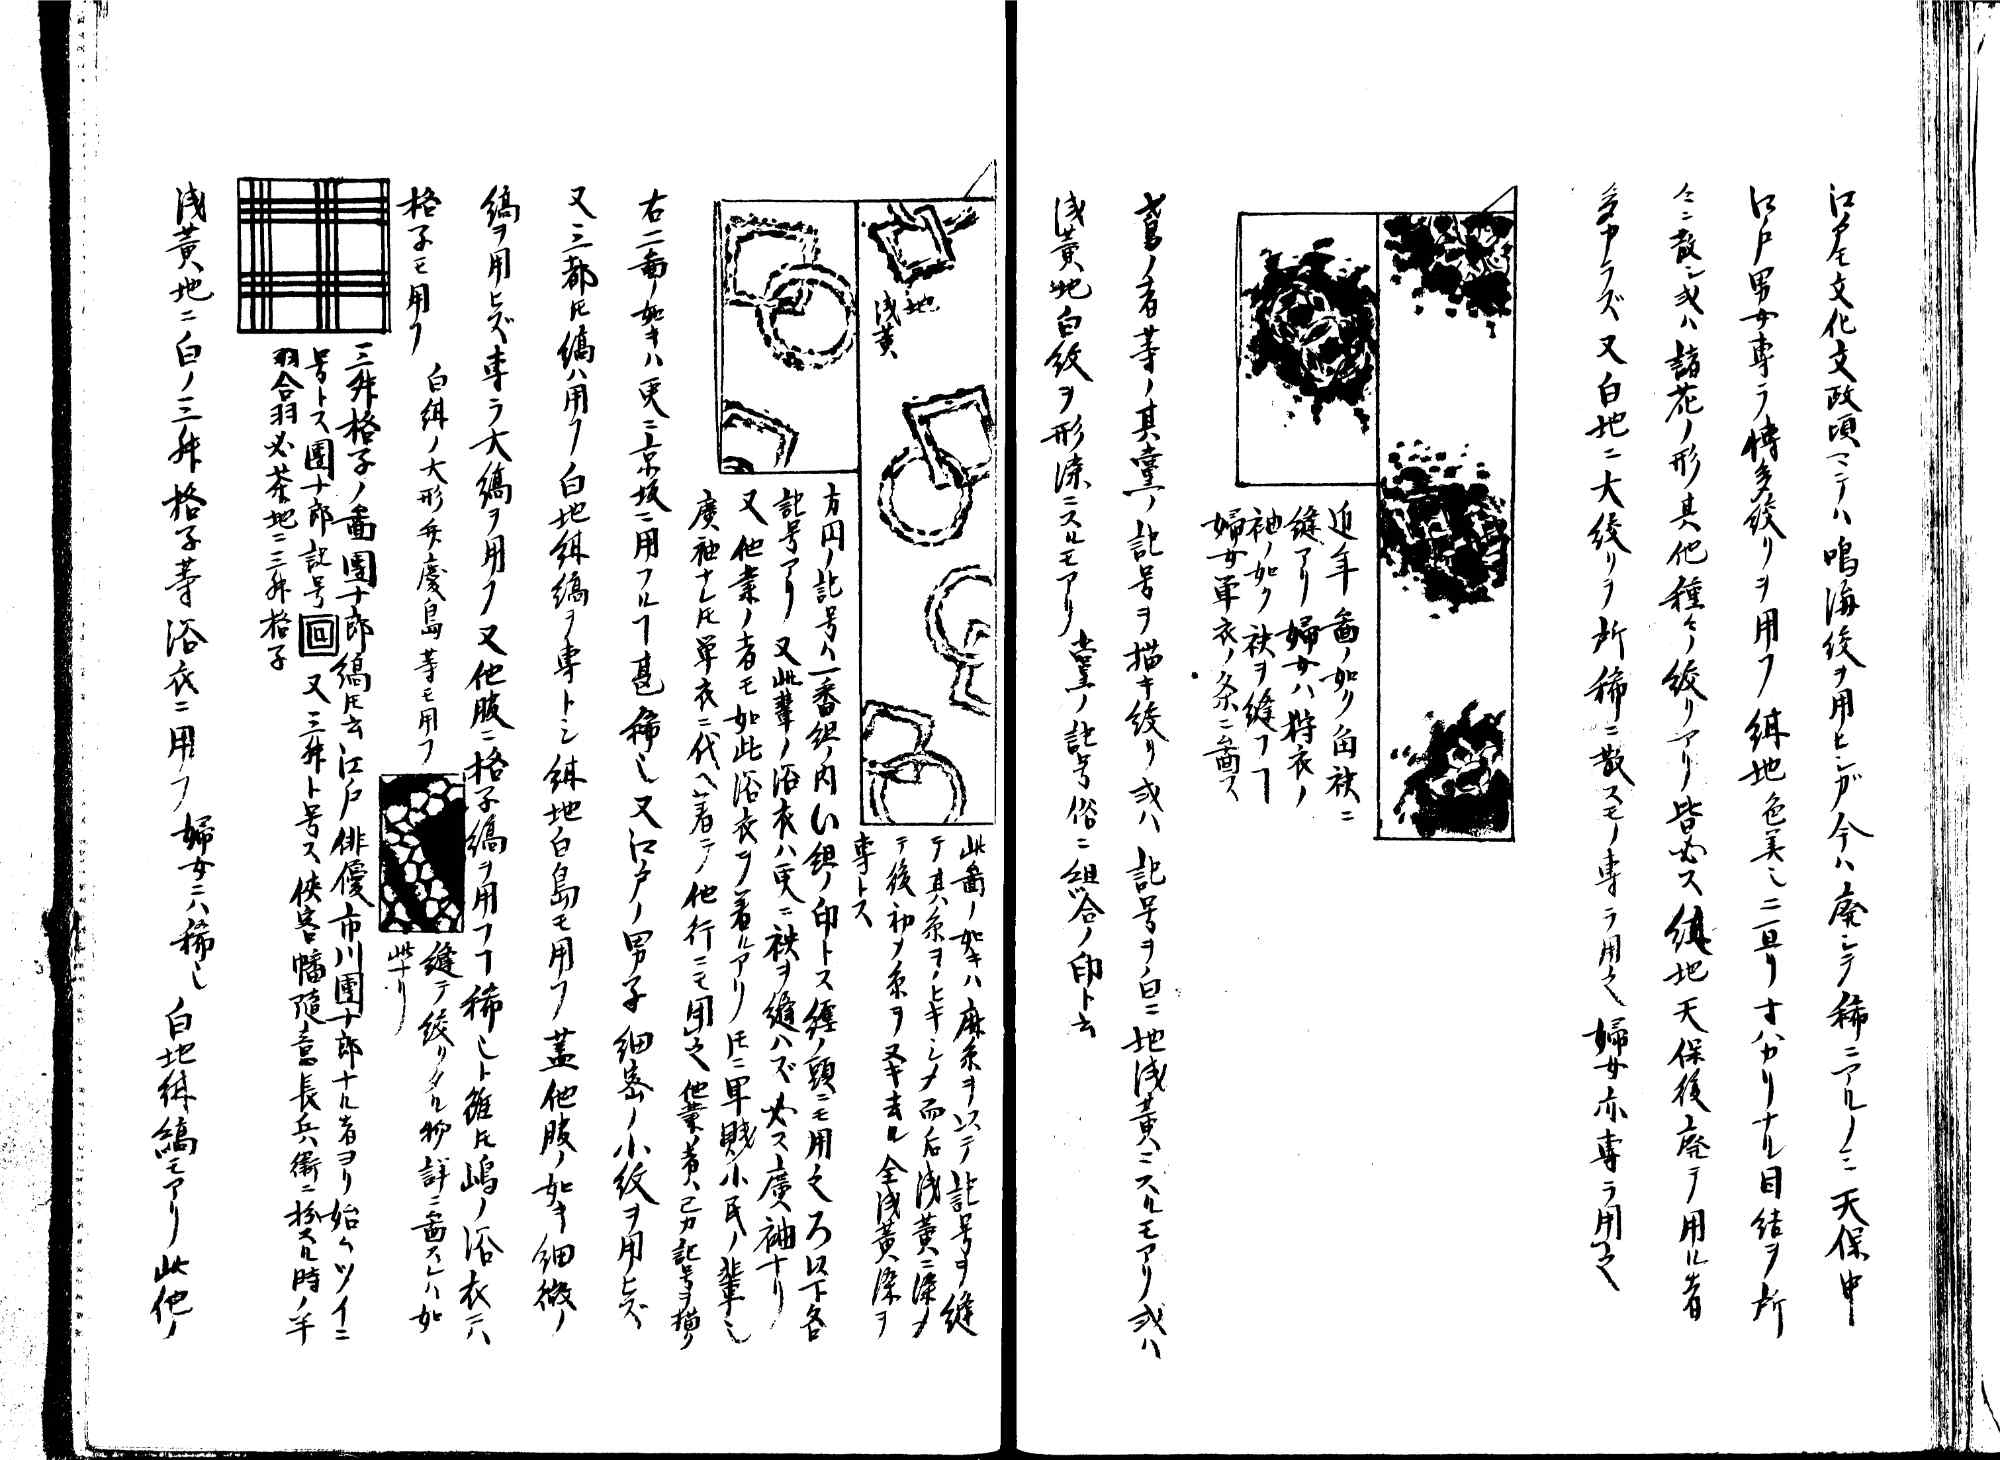 江戸モ文化文政頃マテハ鳴海絞ヲ用ヒシガ今ハ廃シテ稀ニアルノミ天保中
江戸男女専ラ博多絞リヲ用フ紺地色美シニ三且リ寸ハカリナル目結ヲ所
々ニ散シ或ハ諸花ノ形其他種々ノ絞リアリ皆必ス紺地天保後廃テ用ル者
多カラズ又白地ニ大絞リヲ所稀ニ散スモノ専ラ用之婦女亦専ラ用之
近年畵ノ如ク角袂ニ
縫アリ婦女ハ
袖ノ如ク袂ヲ縫フヿ
婦女単衣ノ条ニ畵ス
鳶ノ者等ノ其黨ノ記号ヲ描キ絞リ或ハ記号ヲ白ニ地浅黄ニスルモアリ或ハ
浅黄地白紋ヲ形染ニスルモアリ黨ノ記号俗ニ組合ノ印ト云
地
浅黄
此畵ノ如キハ麻糸ヲ以テ記号ヲ縫
テ其糸ヲノヒキシメ而后浅黄ニ染メ
テ後初メ糸ヲヌキ去ル全浅黄染ヲ
専トス
方円ノ記号ハ一番組ノ内い組ノ印トス纏ノ頭ニモ用之ろ以下各
記号アリ又此輩ノ浴衣ハ更ニ袂ヲ縫ハズ必ス廣袖ナリ
又他業ノ者モ如此浴衣ヲ着ルアリ𪜈ニ卑賤小民ノ輩也
廣袖ナレ𪜈単衣ニ代ヘ着テ他行ニモ用之他業者ハ己カ記号ヲ描ク
右二畵ノ如キハ更ニ京坂ニ用フルヿ甚稀也又江戸ノ男子細密ノ小紋ヲ用ヒズ
又三都𪜈縞ハ用フ白地紺縞ヲ専トシ紺地白島モ用フ蓋他服ノ如キ細微ノ
縞ヲ用ヒズ専ラ大縞ヲ用フ又他服ニ格子縞ヲ用フヿ稀也ト雖𪜈嶋ノ浴衣ニハ
格子モ用フ
白紺ノ大形弁慶島等モ用フ
縫テ絞リタル物詳ニ畵スレハ如
此ナリ
三舛格子ノ畵團十郎縞𪜈云江戸俳優市川團十郎ナル者ヨリ始ムツイニ
号トス團十郎記号回又三舛ト号ス侠客幡隨意長兵衛ニ扮スル時ノ半
羽合羽必茶地ニ三舛格子
浅黄地ニ白ノ三舛格子等浴衣ニ用フ婦女ニハ稀也白地紺縞モアリ此他ノ